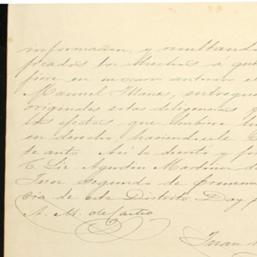 informacion, y resultando
ficados los hechos á que
fiere en
Manuel Illanes, entreguese
originales estas diligencias
los efectos que hubiere lugar
en derecho haciendosele
de auto. Así lo decretó y fir
C. Lic Agustin Martinez de
Juez Segundo de primera
cia de este Distrito. Doy f
A. M. de Castro
Juan